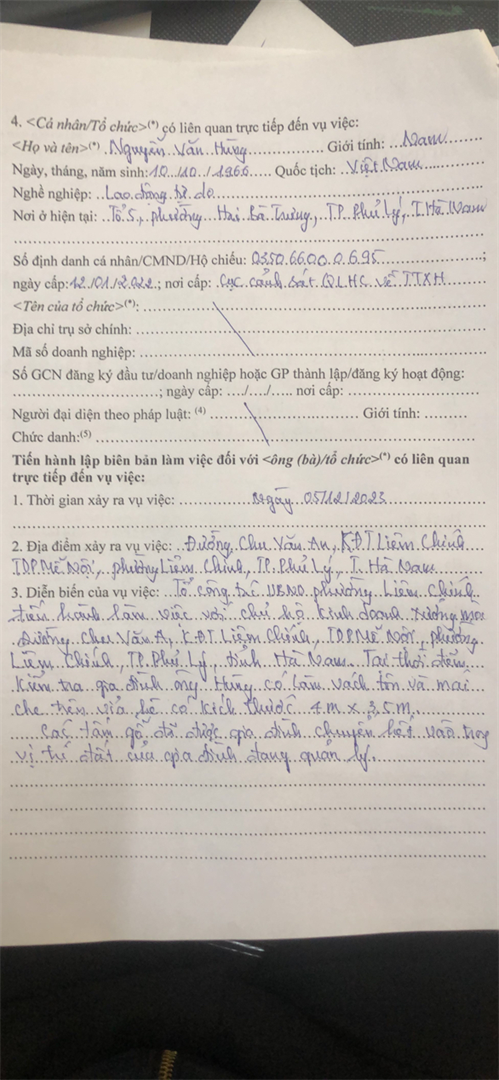 4. <Cá nhân/Tổ chức>(*) có liên quan trực tiếp đến vụ việc:
<Họ và tên>(*) .Nguyễn Văn Hùng............ Giới tính: ...Nam......
Ngày, tháng, năm sinh: 10../10../1966.... Quốc tịch: ..Việt Nam......
Nghề nghiệp: ..Lao động tự do............
Nơi ở hiện tại: ..Tổ 5, phường Hai Bà Trưng, TP. Phủ Lý, T. Hà Nam
............
Số định danh cá nhân/CMND/Hộ chiếu: 035066000695............;
ngày cấp: 12./01./2022.; nơi cấp: Cục cảnh sát QLHC về TTXH............
<Tên của tổ chức>(*): ............
Địa chỉ trụ sở chính: ............
Mã số doanh nghiệp: ............
Số GCN đăng ký đầu tư/doanh nghiệp hoặc GP thành lập/đăng ký hoạt động:
............; ngày cấp: ..../..../..... nơi cấp: ............
Người đại diện theo pháp luật: (4) ............ Giới tính: .........
Chức danh:(5) ............
Tiến hành lập biên bản làm việc đối với <ông (bà)/tổ chức>(*) có liên quan
trực tiếp đến vụ việc:
1. Thời gian xảy ra vụ việc: ............Ngày 05/12/2023............
............
2. Địa điểm xảy ra vụ việc: ..Đường Chu Văn An, KĐT Liêm Chính
TDP Mễ Nội, phường Liêm Chính, TP. Phủ Lý, T. Hà Nam............
3. Diễn biến của vụ việc: ...Tổ công tác UBND phường Liêm Chính
tiến hành làm việc với chủ hộ kinh doanh xưởng mộc
Đường Chu Văn A, KĐT Liêm Chính, TDP Mễ Nội, phường
Liêm Chính, TP. Phủ Lý, tỉnh Hà Nam. Tại thời điểm
kiểm tra gia đình ông Hùng có làm vách tôn và mái
che trên vỉa hè có kích thước 4m x 3,5m.
Các tấm gỗ đã được gia đình chuyển hết vào trong
vị trí đất của gia đình đang quản lý.
............
............
............
............